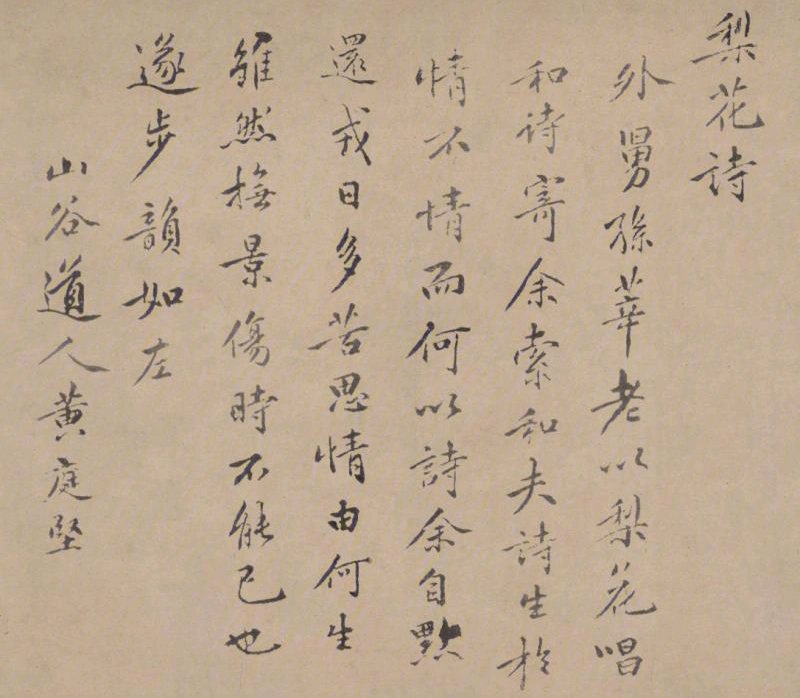 梨花詩
外舅孫莘老以梨花唱
和詩寄余索和夫詩生於
情不情而何以詩余自黜
還戎日多苦思情由何生
雖然撫景傷時不能已也
遂步韻如左
山谷道人黃庭堅